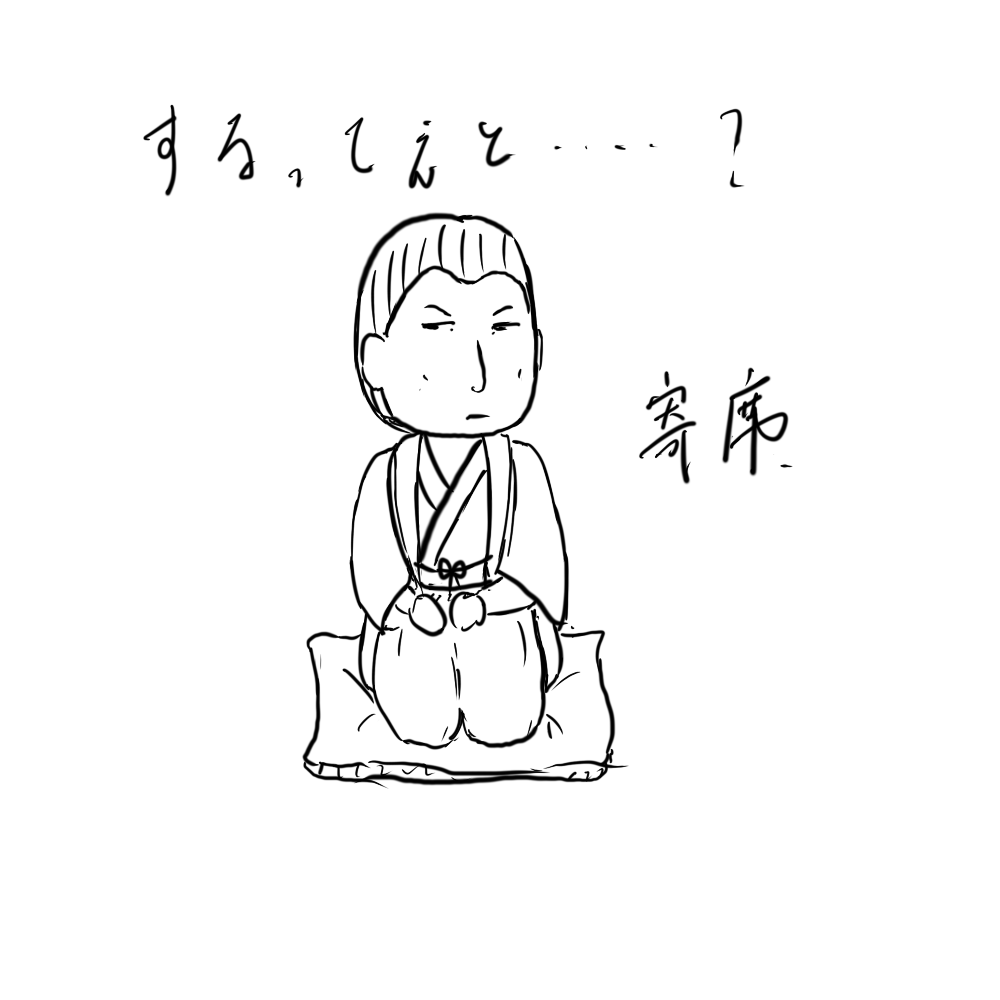 するってえと・・・・・?
寄席